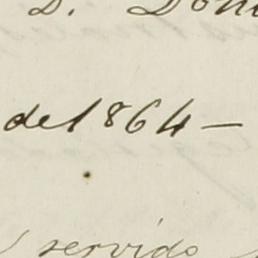 D. Don
de 1864 —
servido